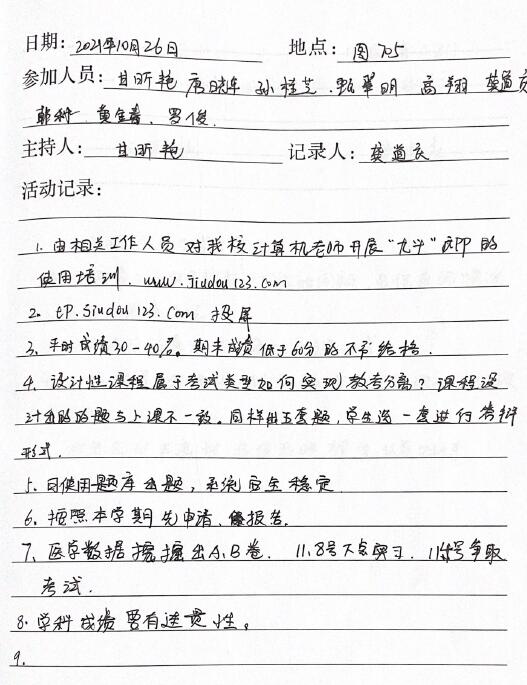 日期：2021年10月26日 地点：图705
参加人员：甘昕艳 唐晓年 孙桂芝. 甄翠明 高翔 龚道
韩科 黄金 . 罗俊.
主持人：甘昕艳 记录人：龚道
活动记录：
1. 由相关工作人员对我校计算机老师开展“九斗”APP的
使用培训. www.jiudou123.com
2. tp.jiudou123.com 投屏
3. 平时成绩30-40%。期末成绩低于60分的不予给格.
4. 设计性课程属于考试类型如何实现教考分离？课程设
计出的的题与上课不一致。同样出五套题，学生选一套进行答辩
形式.
5. 可使用题库出题，系统安全稳定
6. 按照本学期先申请、 报告.
7. 医学数据挖掘出A、B卷. 11.8号 实习. 争取
考试.
8. 学科成绩要有连贯性。
9.